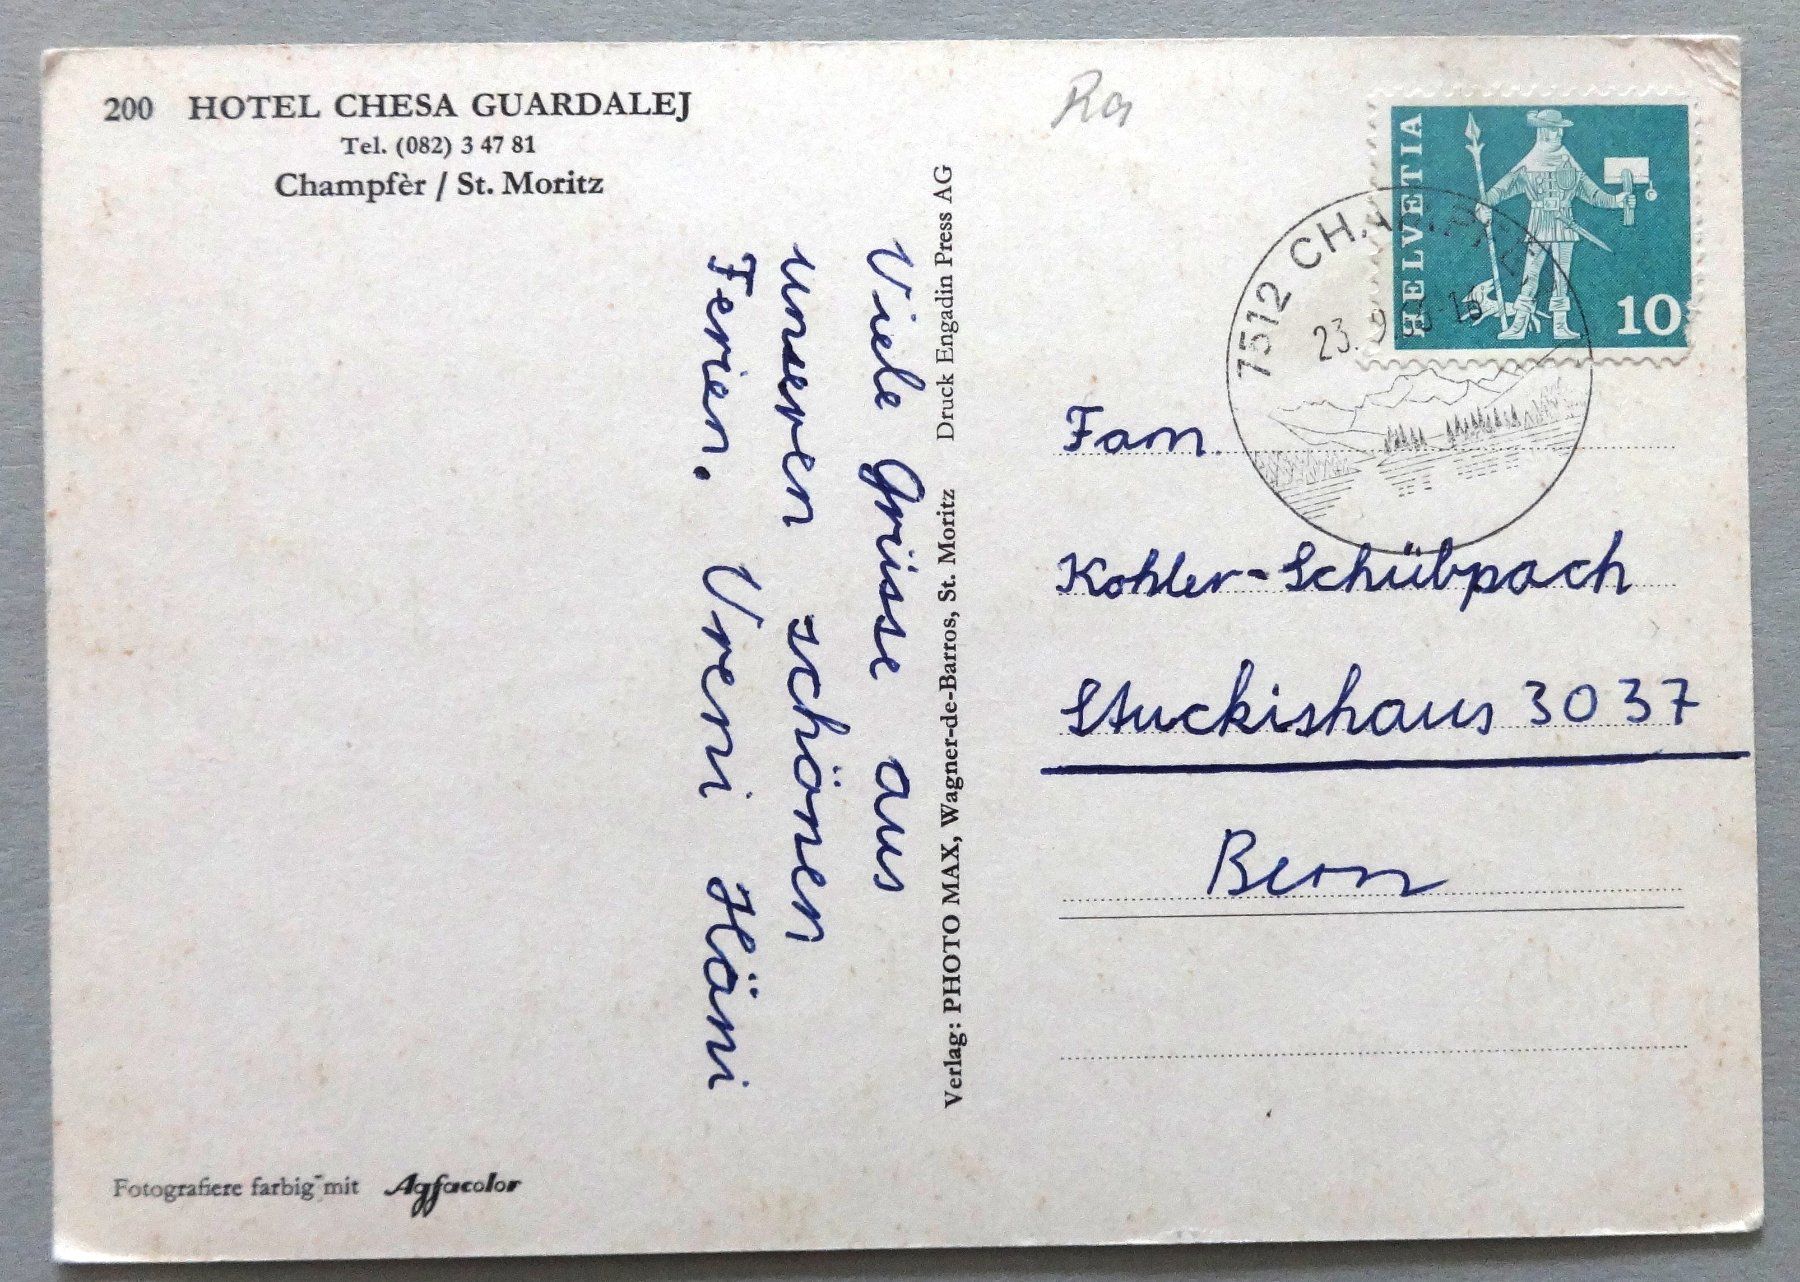 200 HOTEL CHESA GUARDALEJ
Tel. (082) 3 47 81
Champfèr / St. Moritz
Viele Grüsse aus
unseren schönen
Ferien. Vreni Häni
Verlag: PHOTO MAX, Wagner-de-Barros, St. Moritz Druck Engadin Press AG
Fotografiere farbig mit Agfacolor
HELVETIA
10
7512 CHAMPFÈR
23.
Fam.
Kohler-Schübpach
Stuckishaus 3037
Bern